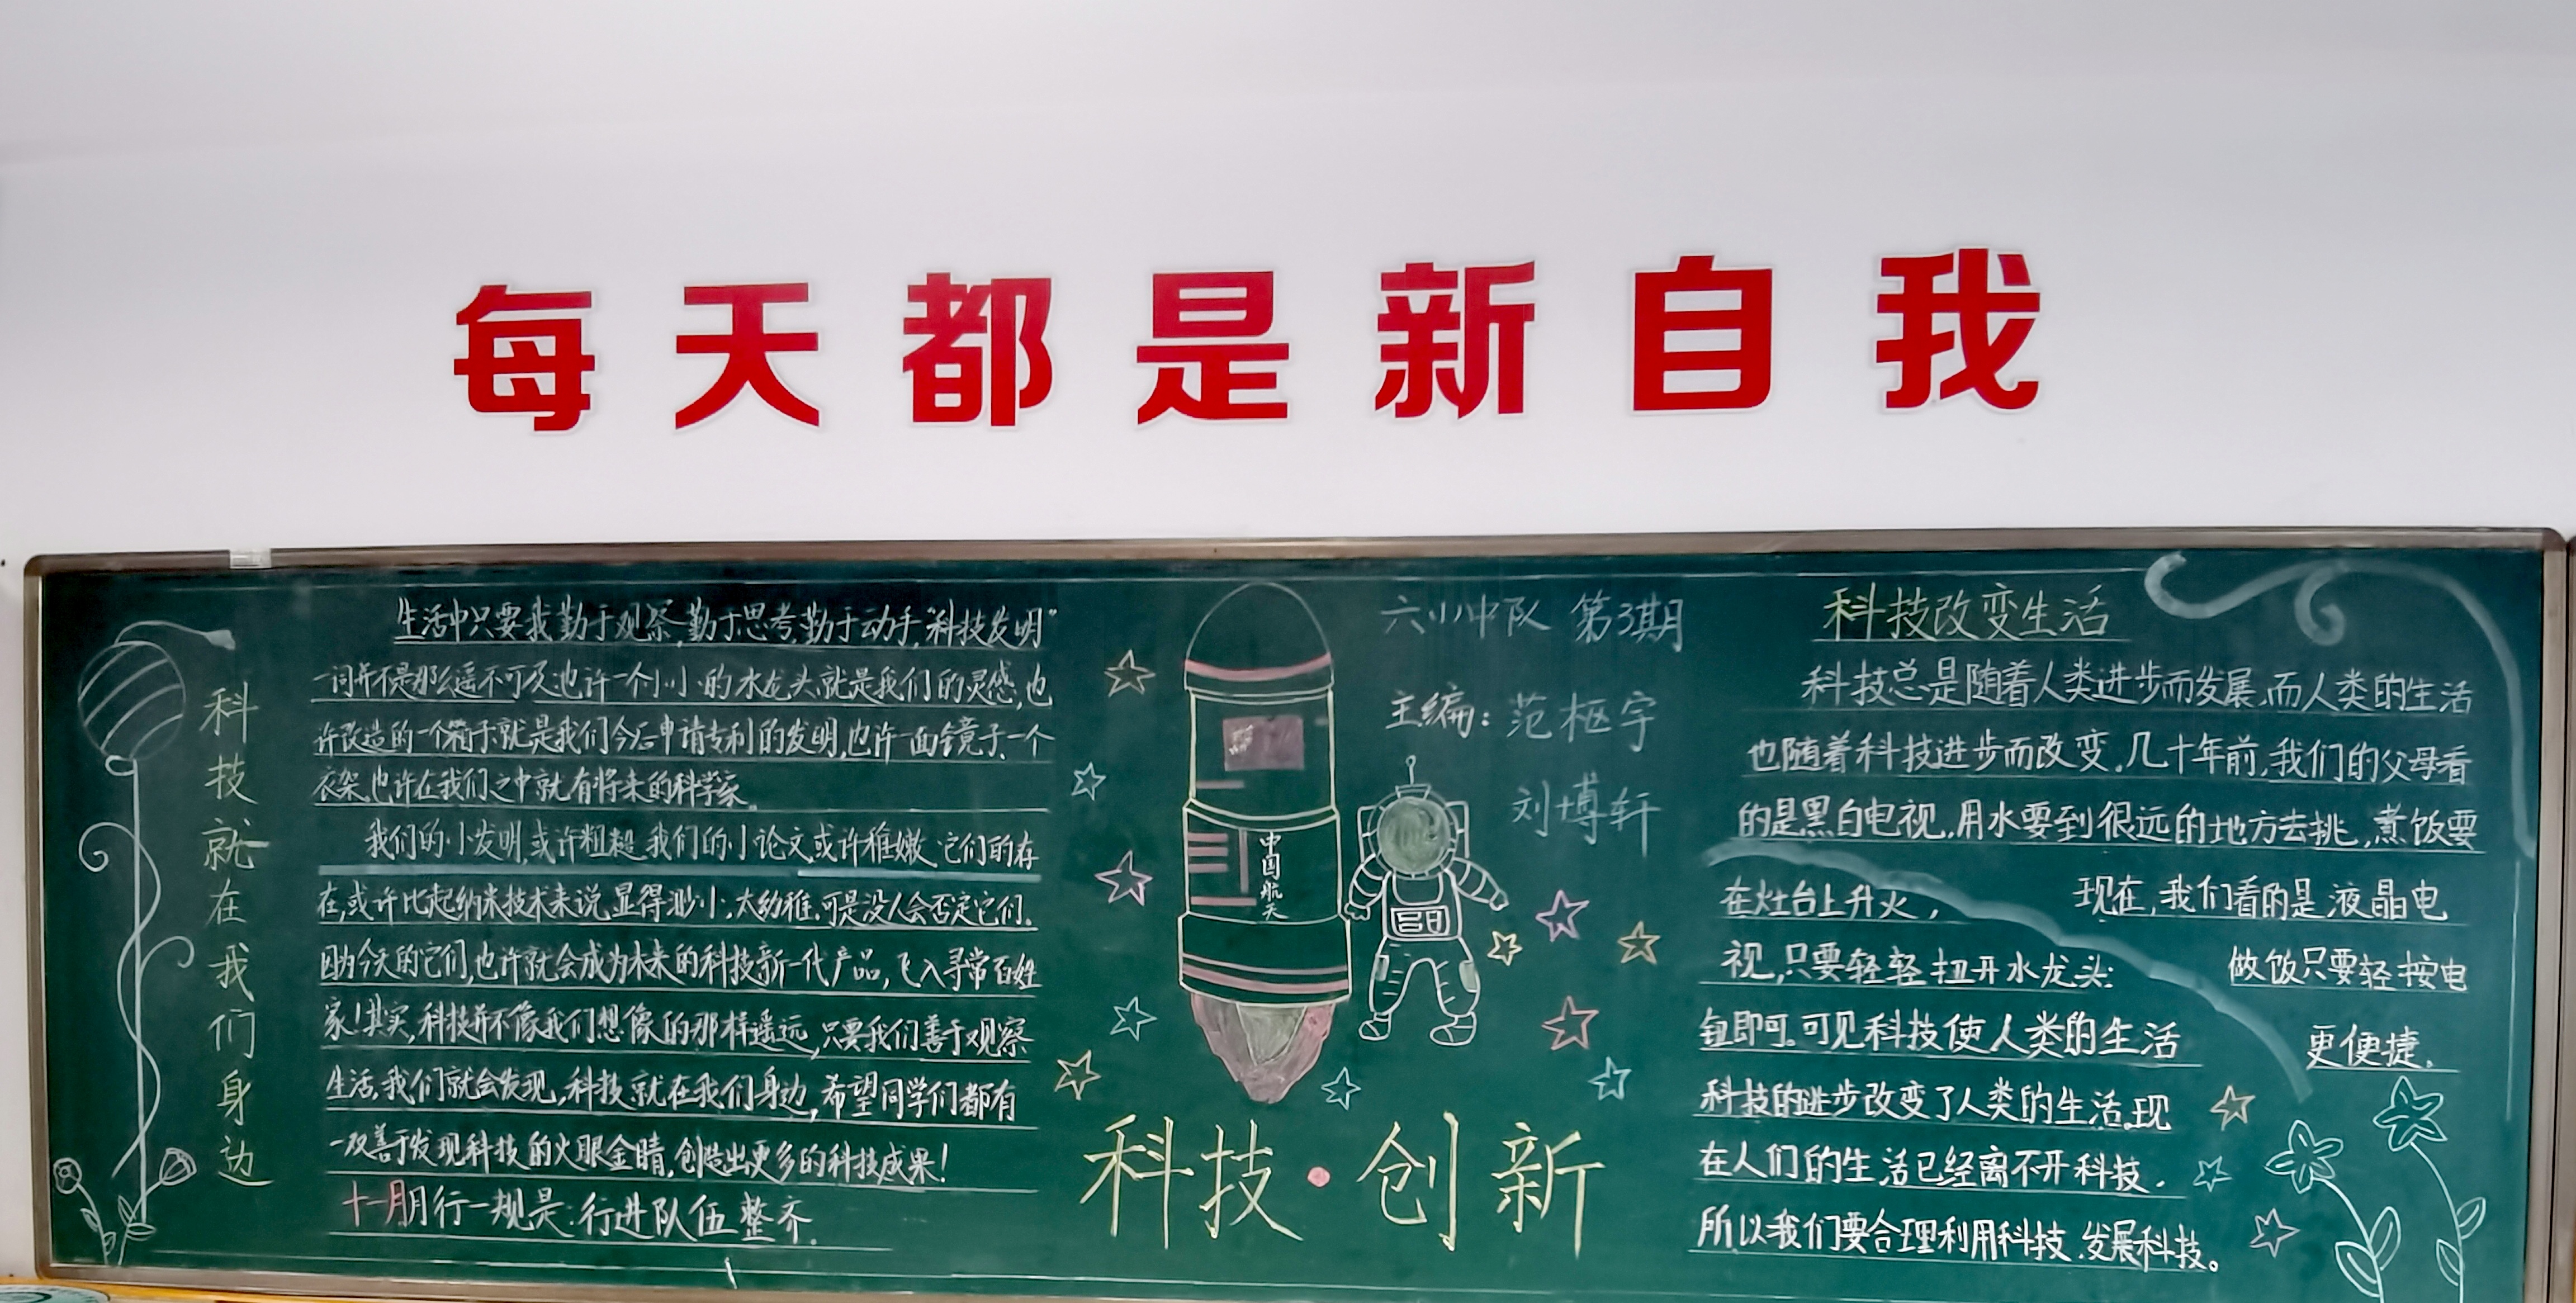 每天都是新自我
科技就在我们身边
生活中只要我勤于观察,勤于思考,勤于动手,“科技发明”
一词并不是那么遥不可及,也许一个小小的水龙头,就是我们的灵感,也
许改造的一个箱子,就是我们今后申请专利的发明,也许一面镜子、一个
衣架,也许在我们之中就有将来的科学家。
我们的小发明,或许粗糙,我们的小论文,或许稚嫩,它们的存
在,或许比起纳米技术来说,显得渺小,太幼稚.可是没人会否定它们.
因为今天的它们,也许就会成为未来的科技新一代产品,飞入寻常百姓
家!其实,科技并不像我们想像的那样遥远,只要我们善于观察
生活,我们就会发现,科技就在我们身边,希望同学们都有
一双善于发现科技的火眼金睛,创造出更多的科技成果!
十一月月行一规是:行进队伍整齐.
中国航天
六小中队 第3期
主编:范枢宇
刘博轩
科技·创新
科技改变生活
科技总是随着人类进步而发展,而人类的生活
也随着科技进步而改变.几十年前,我们的父母看
的是黑白电视,用水要到很远的地方去挑,煮饭要
在灶台上升火, 现在,我们看的是液晶电
视,只要轻轻扭开水龙头; 做饭只要轻按电
钮即可.可见科技使人类的生活 更便捷.
科技的进步改变了人类的生活.现
在人们的生活已经离不开科技.
所以我们要合理利用科技、发展科技。